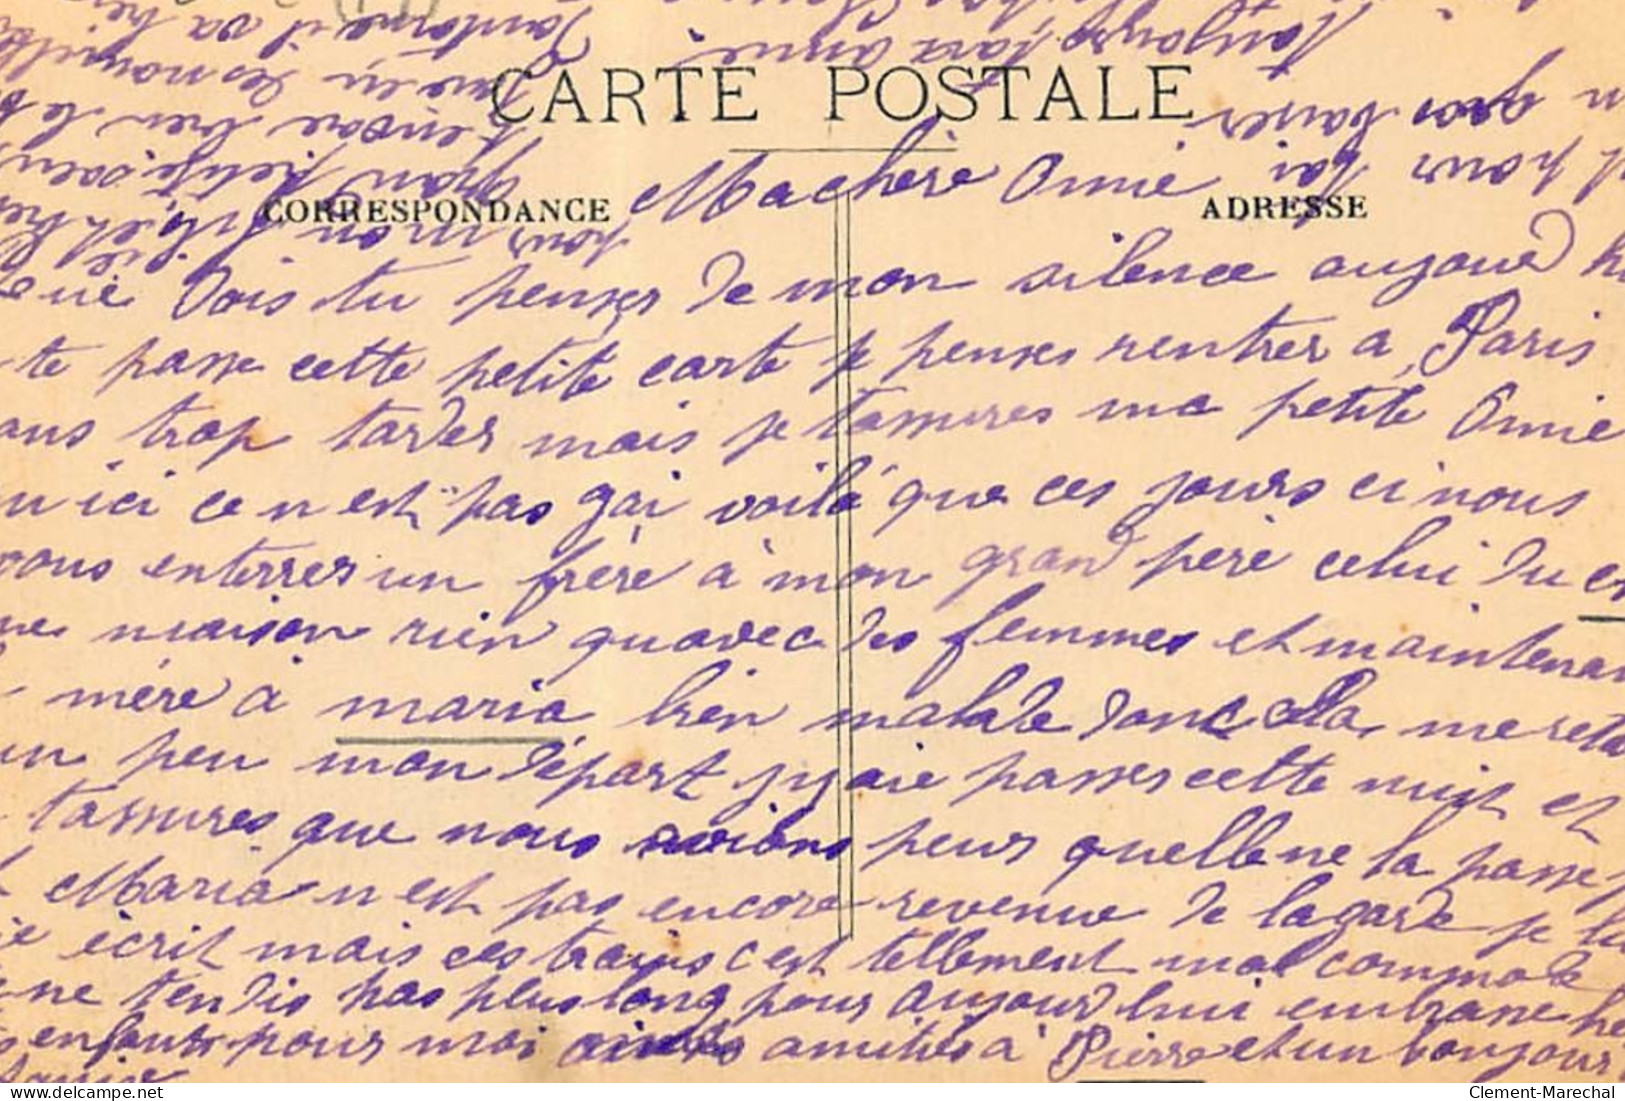 CARTE POSTALE
CORRESPONDANCE
ADRESSE
Ma chère Amie
que dois tu penser de mon silence aujourd hu
te passe cette petite carte je penses rentrer a Paris
ans trop tarder mais je tassures ma petite Amie
u ici ce n est pas gai voila que ces jours ci nous
vons enterrer un frère à mon grand père celui du
maison rien quavec des femmes et maintenan
mère à maria bien malade donc cela me reta
un peu mon départ jy aie passer cette nuit et
tassures que nous avions peur quelle ne la passe p
Maria n est pas encore revenue de lagarde je lu
ie écrit mais ces trains c est tellement mal commode
ne ten dis pas plus long pour aujourd hui embrasse
enfants pour moi amitiés à Pierre et un bonjour
pour mon
gran petite soeur
encore bien le b
des nouvelle
Jantome il va
n gros baiser
t pour toi
toujours ton amie